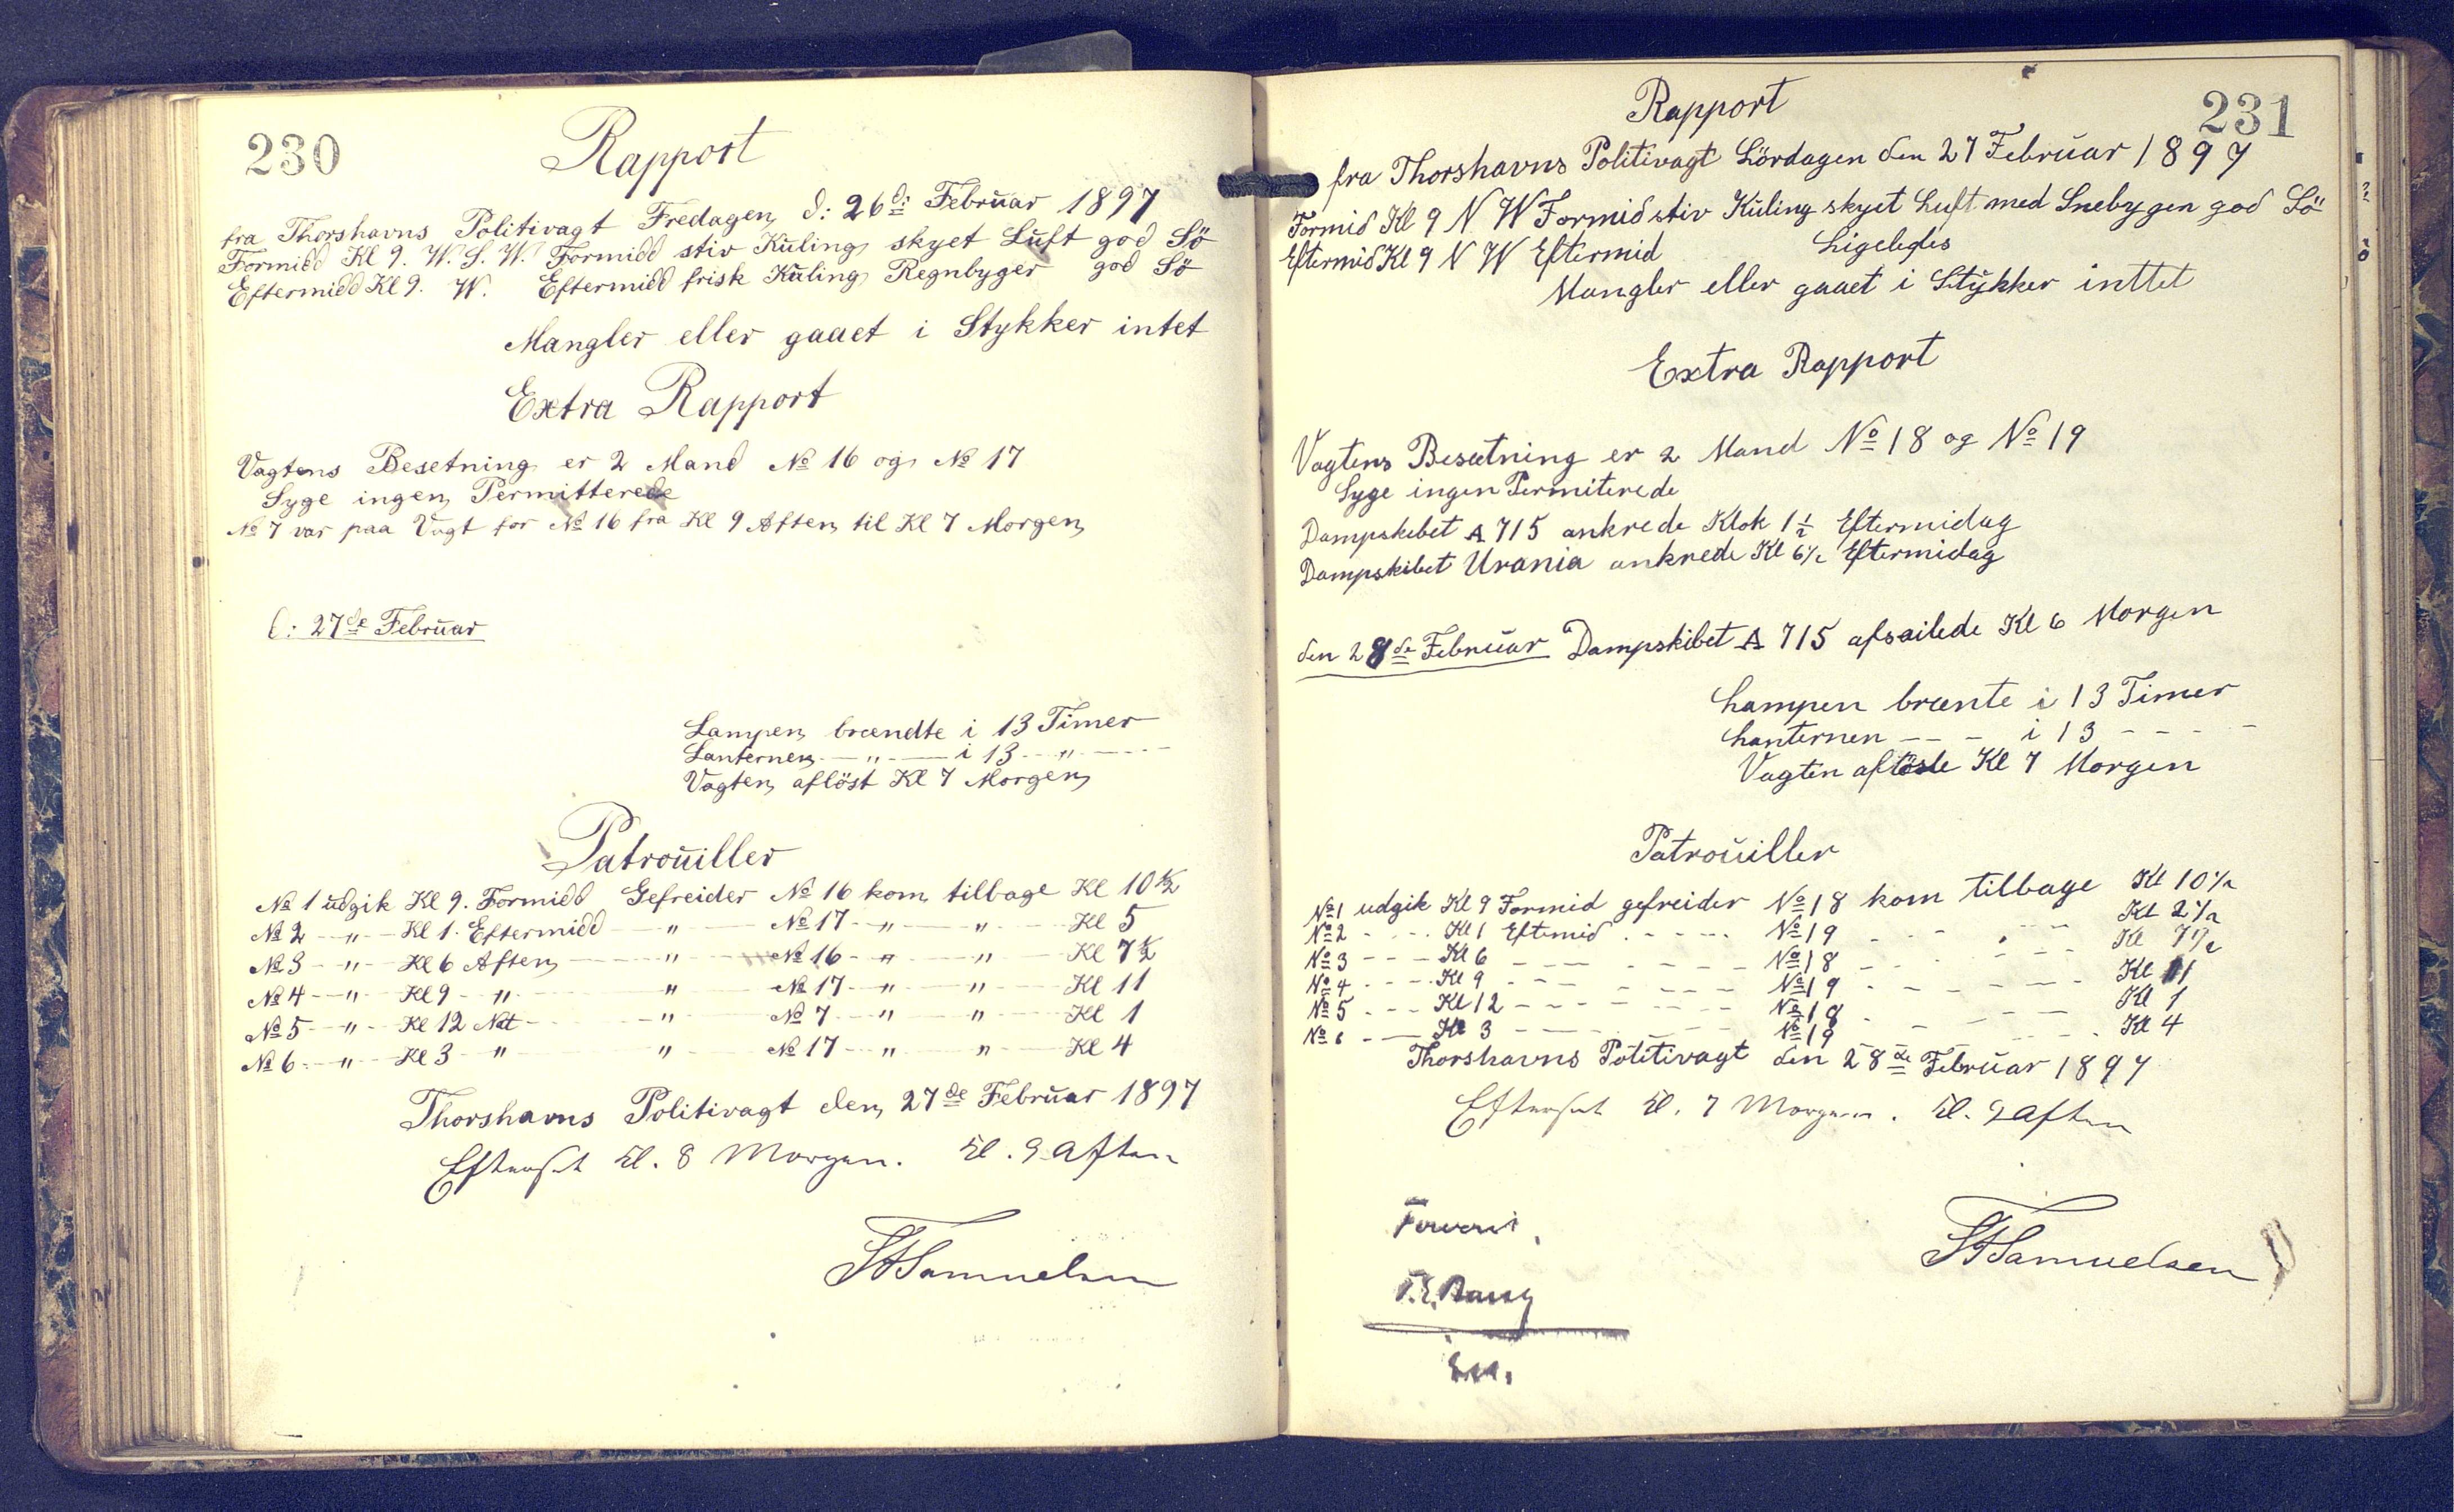 230
Rapport
fra Thorshavns Politivagt Fredagen d: 26d: Februar 1897
Formidd Kl 9. W. S. W. Formidd stiv Kuling skyet Luft god Sö
Eftermidd Kl 9. W. Eftermidd frisk Kuling Regnbyger god Sö
Mangler eller gaaet i Stykker intet
Extra Rapport
Vagtens Besetning er 2 Mand № 16 og № 17
Syge ingen Permitterede
№ 7 var paa Vagt for № 16 fra Kl 9 Aften til Kl 7 Morgen
d: 27de Februar
Lampen brændte i 13 Timer
Lanternen — " — i 13 — " —
Vagten aflöst Kl 7 Morgen
Patrouiller
№ 1 udgik Kl 9. Formidd Gefreider № 16 kom tilbage Kl 10½
№ 2 — " — Kl 1. Eftermidd — " — № 17 — " — " — Kl 5
№ 3 — " — Kl 6 Aften — " — № 16 — " — " — Kl 7½
№ 4 — " — Kl 9 — " — " — № 17 — " — " — Kl 11
№ 5 — " — Kl 12 Nat — " — № 7 — " — " — Kl 1
№ 6 — " — Kl 3 — " — " — № 17 — " — " — Kl 4
Thorshavns Politivagt den 27de Februar 1897
Efterset Kl. 8 Morgen. Kl. 9 Aften
Samuelsen
231
Rapport
fra Thorshavns Politivagt Lördagen den 27 Februar 1897
Formid Kl 9 N W Formid stiv Kuling skyet Luft med Snebygen god Sö
Eftermid Kl 9 N W Eftermid Ligeledes
Mangler eller gaaet i Stykker inttet
Extra Rapport
Vagtens Besætning er 2 Mand № 18 og № 19
Syge ingen Permiterede
Dampskebet A 715 ankrede Klok 1½ Eftermidag
Dampskibet Urania ankrede Kl 6½ Eftermidag
den 28de Februar Dampskibet A 715 afsailede Kl 6 Morgen
Lampen brænte i 13 Timer
Lanternen — — — i 13 — — —
Vagten aflöste Kl 7 Morgen
Patrouiller
№ 1 udgik Kl 9 Formid gefreider № 18 kom tilbage Kl 10½
№ 2 - - - Kl 1 Eftemid - - - № 19 - - - Kl 2½
№ 3 - - - Kl 6 - - - № 18 - - - Kl 7½
№ 4 - - - Kl 9 - - - № 19 - - - Kl 11
№ 5 - - - Kl 12 - - - № 18 - - - Kl 1
№ 6 - - - Kl 3 - - - № 19 - - - Kl 4
Thorshavns Politivagt den 28de Februar 1897
Efterset Kl. 7 Morgen. Kl. 9 Aften
Samuelsen